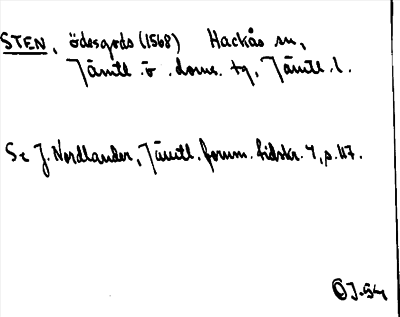 STEN, ödesgods (1568) Hackås sn,
Jämtl. ö. doms. tg, Jämtl. l.
Se J. Nordlander, Jämtl. fornm. tidskr. 4, p. 117.
ÖJ.54